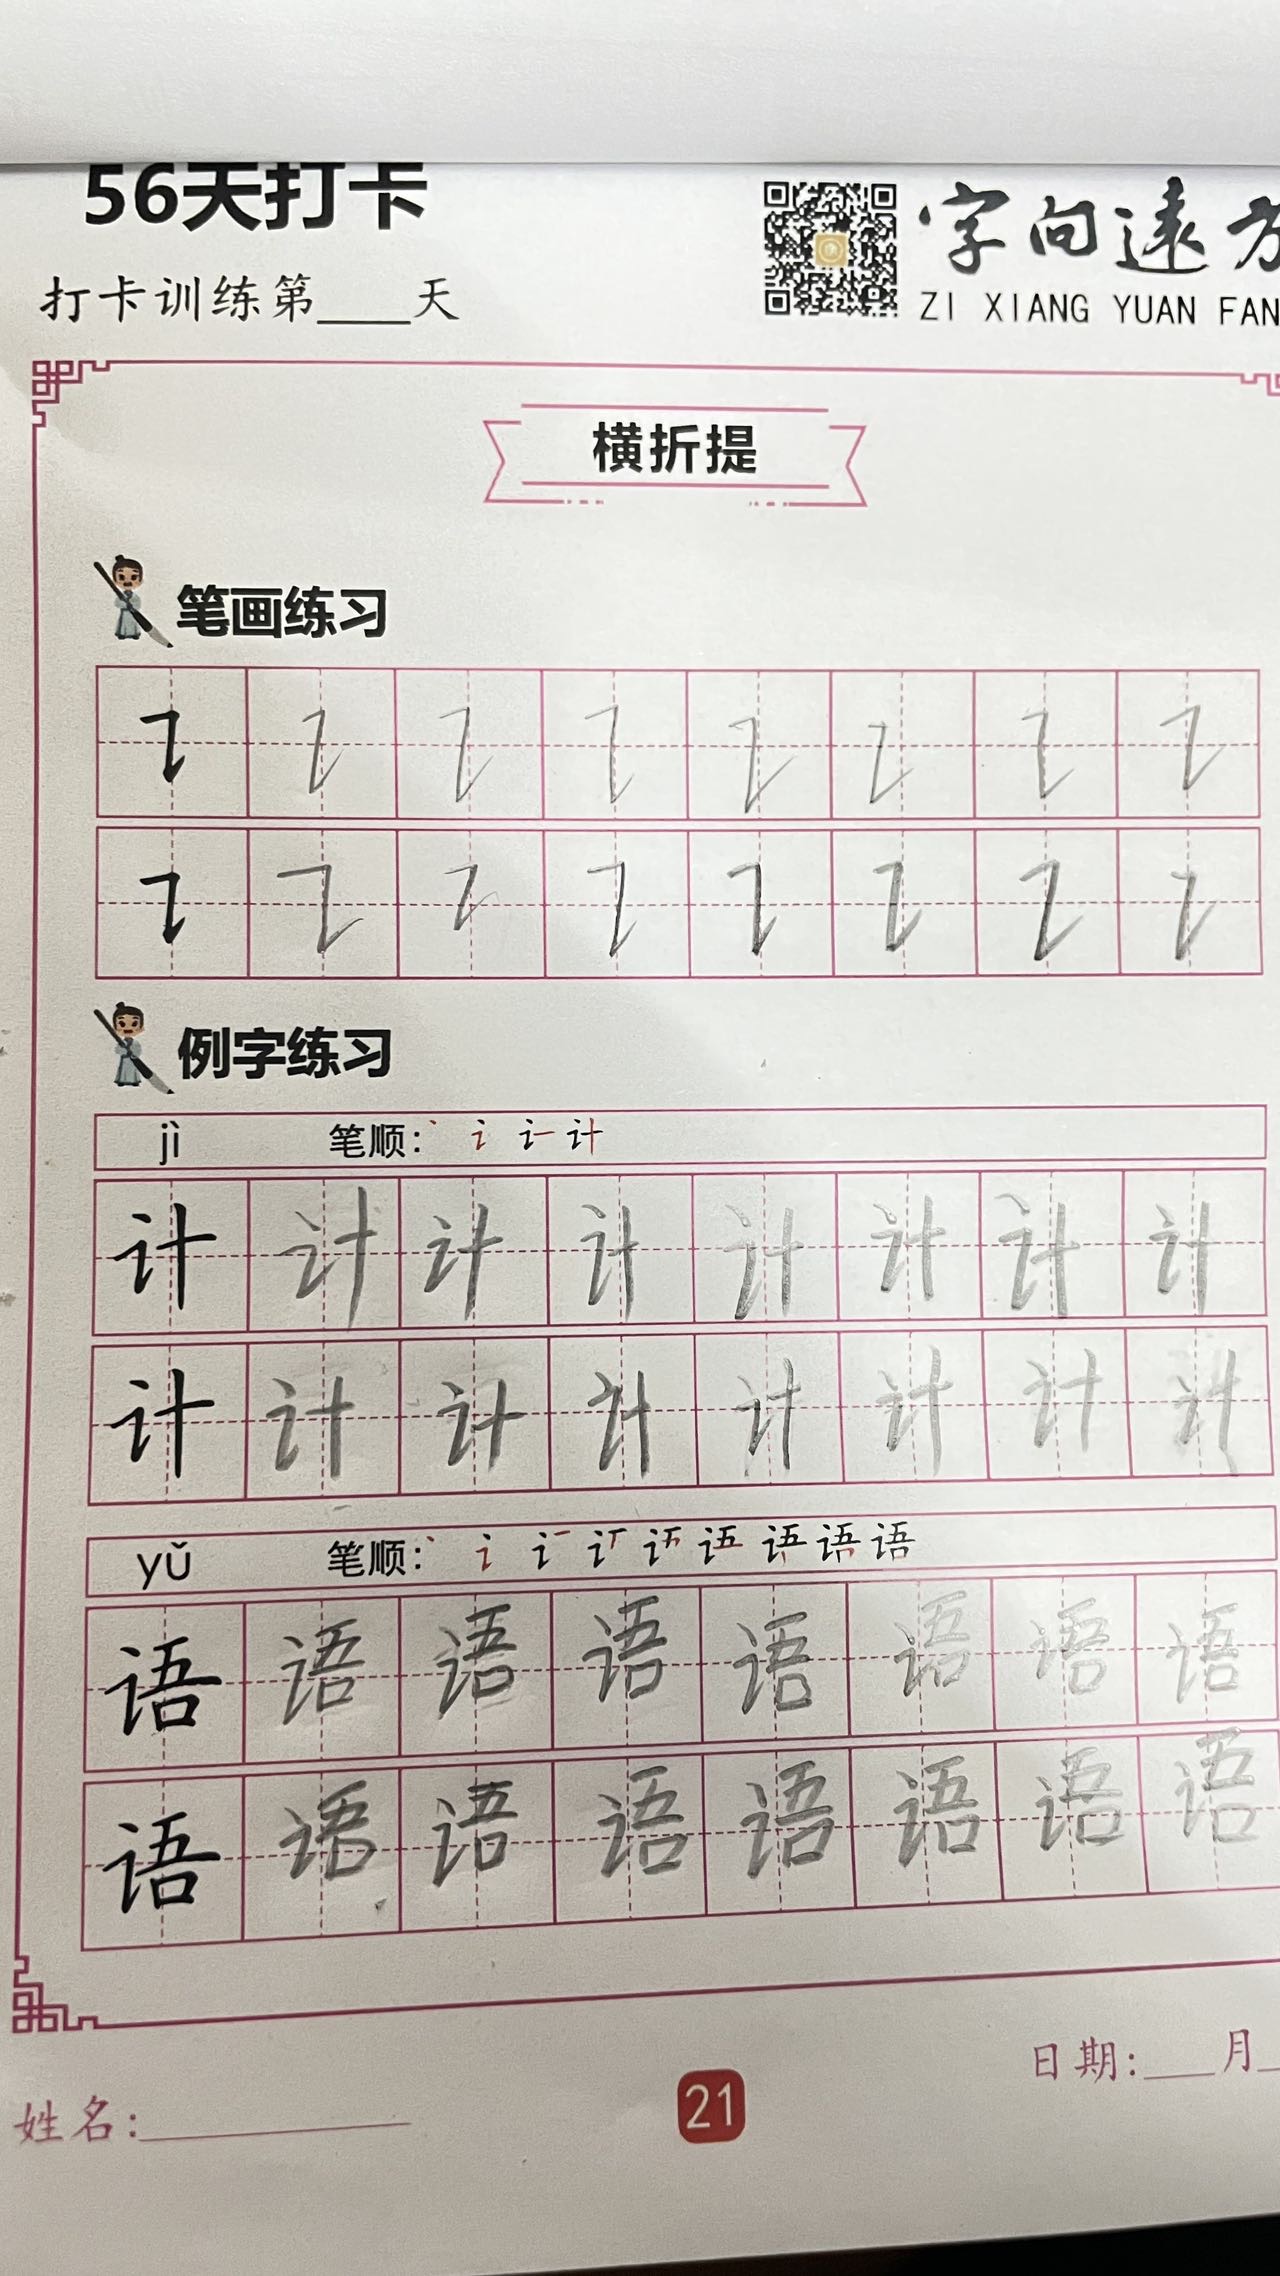 56天打卡
字向遠方
ZI XIANG YUAN FAN
打卡训练第____天
横折提
笔画练习
㇊ ㇊ ㇊ ㇊ ㇊ ㇊ ㇊ ㇊
㇊ ㇊ ㇊ ㇊ ㇊ ㇊ ㇊ ㇊
例字练习
jì 笔顺:
计 计 计 计 计 计 计 计
计 计 计 计 计 计 计 计
yǔ 笔顺:
语 语 语 语 语 语 语 语
语 语 语 语 语 语 语 语
日期:___月_
姓名:__________
21